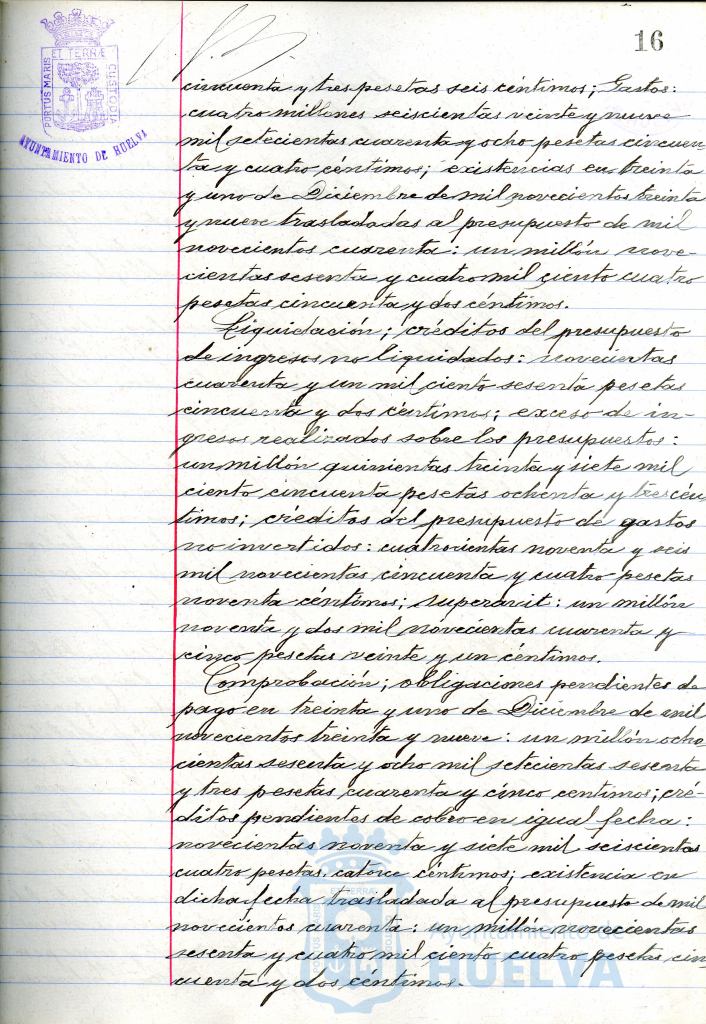 16
PORTUS MARIS
ET TERRÆ
CUSTODIA
AYUNTAMIENTO DE HUELVA
cincuenta y tres pesetas seis céntimos; Gastos:
cuatro millones seiscientas veinte y nueve
mil setecientas cuarenta y ocho pesetas cincuen-
ta y cuatro céntimos; existencias en treinta
y uno de Diciembre de mil novecientos treinta
y nueve trasladadas al presupuesto de mil
novecientos cuarenta: un millón nove-
cientas sesenta y cuatro mil ciento cuatro
pesetas cincuenta y dos céntimos.
Liquidación; créditos del presupuesto
de ingresos no liquidados: novecientas
cuarenta y un mil ciento sesenta pesetas
cincuenta y dos céntimos; exceso de in-
gresos realizados sobre los presupuestos:
un millón quinientas treinta y siete mil
ciento cincuenta pesetas ochenta y tres cén-
timos; créditos del presupuesto de gastos
no invertidos: cuatrocientas noventa y seis
mil novecientas cincuenta y cuatro pesetas
noventa céntimos; superavit: un millón
noventa y dos mil novecientas cuarenta y
cinco pesetas veinte y un céntimos.
Comprobación; obligaciones pendientes de
pago en treinta y uno de Diciembre de mil
novecientos treinta y nueve: un millón ocho-
cientas sesenta y ocho mil setecientas sesenta
y tres pesetas cuarenta y cinco centimos; cré-
ditos pendientes de cobro en igual fecha:
novecientas noventa y siete mil seiscientas
cuatro pesetas catorce céntimos; existencia en
dicha fecha trasladada al presupuesto de mil
novecientos cuarenta: un millón novecientas
sesenta y cuatro mil ciento cuatro pesetas cin-
cuenta y dos céntimos.
Ayuntamiento de
HUELVA